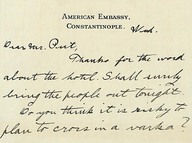 AMERICAN EMBASSY,
CONSTANTINOPLE.
Wed.
Dear Mrs.
Thanks for the word
about the hotel. Shall surely
bring the people out tonight.
Do you think it is risky to
plan to cross in a